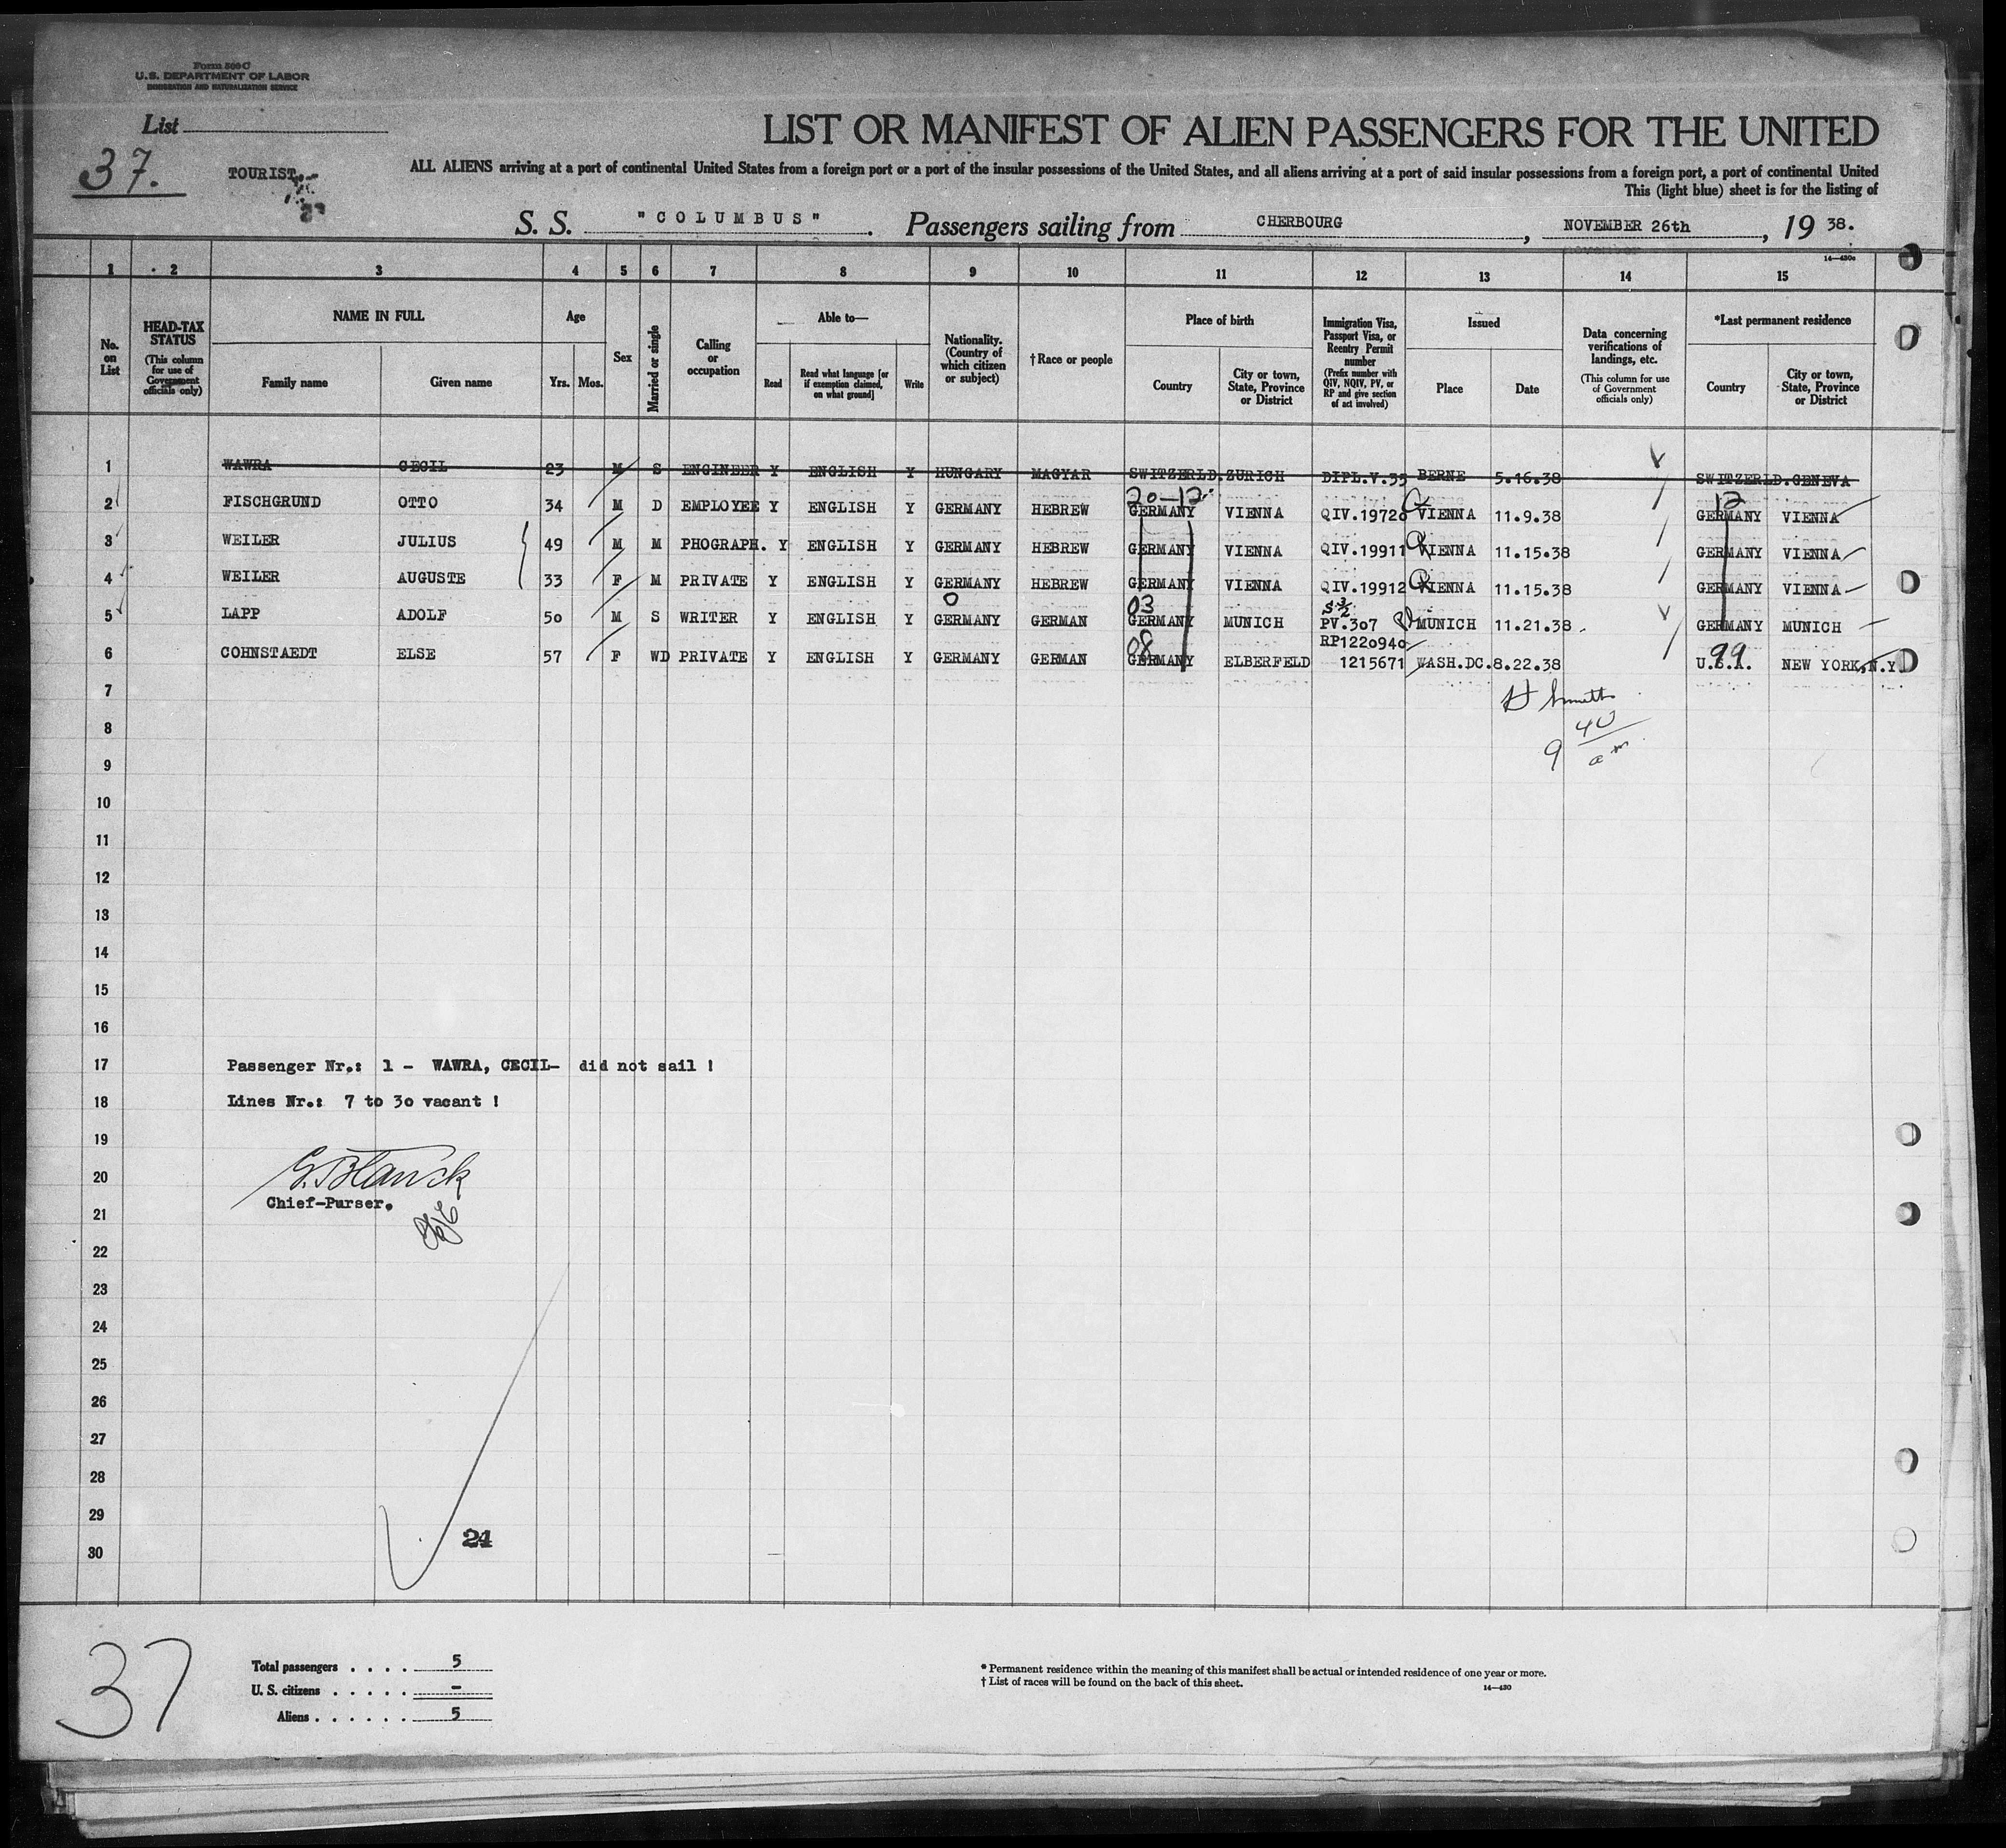 Form 500 C
U.S. DEPARTMENT OF LABOR
IMMIGRATION AND NATURALIZATION SERVICE
List
37.
TOURIST
LIST OR MANIFEST OF ALIEN PASSENGERS FOR THE UNITED
ALL ALIENS arriving at a port of continental United States from a foreign port or a port of the insular possessions of the United States, and all aliens arriving at a port of said insular possessions from a foreign port, a port of continental United
This (light blue) sheet is for the listing of
S. S. "COLUMBUS". Passengers sailing from CHERBOURG, NOVEMBER 26th, 19 38.
14—430c
1 2 3 4 5 6 7 8 9 10 11 12 13 14 15
No. on List
HEAD-TAX STATUS (This column for use of Government officials only)
NAME IN FULL Family name Given name
Age Yrs. Mos.
Sex
Married or single
Calling or occupation
Able to— Read Read what language [or if exemption claimed, on what ground] Write
Nationality. (Country of which citizen or subject)
† Race or people
Place of birth Country City or town, State, Province or District
Immigration Visa, Passport Visa, or Reentry Permit number (Prefix number with QIV, NQIV, PV, or RP and give section of act involved)
Issued Place Date
Data concerning verifications of landings, etc. (This column for use of Government officials only)
*Last permanent residence Country City or town, State, Province or District
1 WAWRA CECIL 23 M S ENGINEER Y ENGLISH Y HUNGARY MAGYAR SWITZERLD. ZURICH DIPL.V.35 BERNE 5.16.38 SWITZERLD. GENEVA
20-12 12
2 FISCHGRUND OTTO 34 M D EMPLOYEE Y ENGLISH Y GERMANY HEBREW GERMANY VIENNA QIV.19720 VIENNA 11.9.38 GERMANY VIENNA
3 WEILER JULIUS 49 M M PHOGRAPH. Y ENGLISH Y GERMANY HEBREW GERMANY VIENNA QIV.19911 VIENNA 11.15.38 GERMANY VIENNA
4 WEILER AUGUSTE 33 F M PRIVATE Y ENGLISH Y GERMANY HEBREW GERMANY VIENNA QIV.19912 VIENNA 11.15.38 GERMANY VIENNA
0 03 S 3/2
5 LAPP ADOLF 50 M S WRITER Y ENGLISH Y GERMANY GERMAN GERMANY MUNICH PV.307 MUNICH 11.21.38 GERMANY MUNICH
08 RP1220940 99
6 COHNSTAEDT ELSE 57 F WD PRIVATE Y ENGLISH Y GERMANY GERMAN GERMANY ELBERFELD 1215671 WASH.DC. 8.22.38 U.S.A. NEW YORK, N.Y.
7
8
9 40
am
9
10
11
12
13
14
15
16
17 Passenger Nr.: 1 - WAWRA, CECIL- did not sail !
18 Lines Nr.: 7 to 30 vacant !
19
20 G. Blanck
Chief-Purser.
21
22
23
24
25
26
27
28
29
24
30
37
Total passengers . . . . 5
U. S. citizens . . . . . -
Aliens . . . . . . 5
* Permanent residence within the meaning of this manifest shall be actual or intended residence of one year or more.
† List of races will be found on the back of this sheet.
14—430